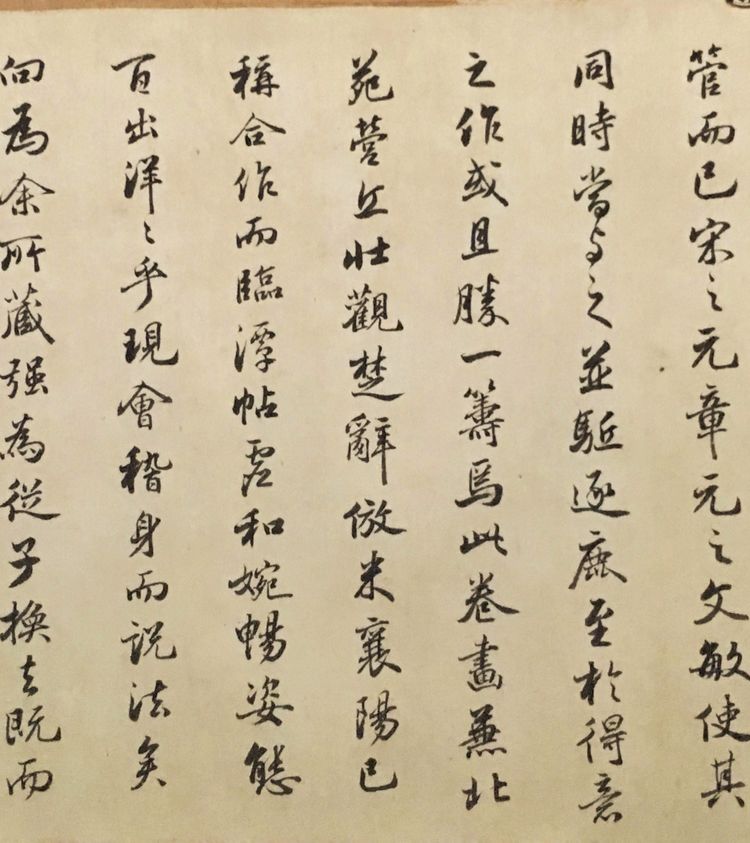 管而已宋之元章元之文敏使其
同時當与之並駈逐鹿至於得意
之作或且勝一籌焉此卷畫兼北
苑營丘壯觀楚辭倣米襄陽已
稱合作而臨潭帖虛和婉暢姿態
百出洋〻乎現會稽身而説法矣
向為余所藏强為從子換去既而